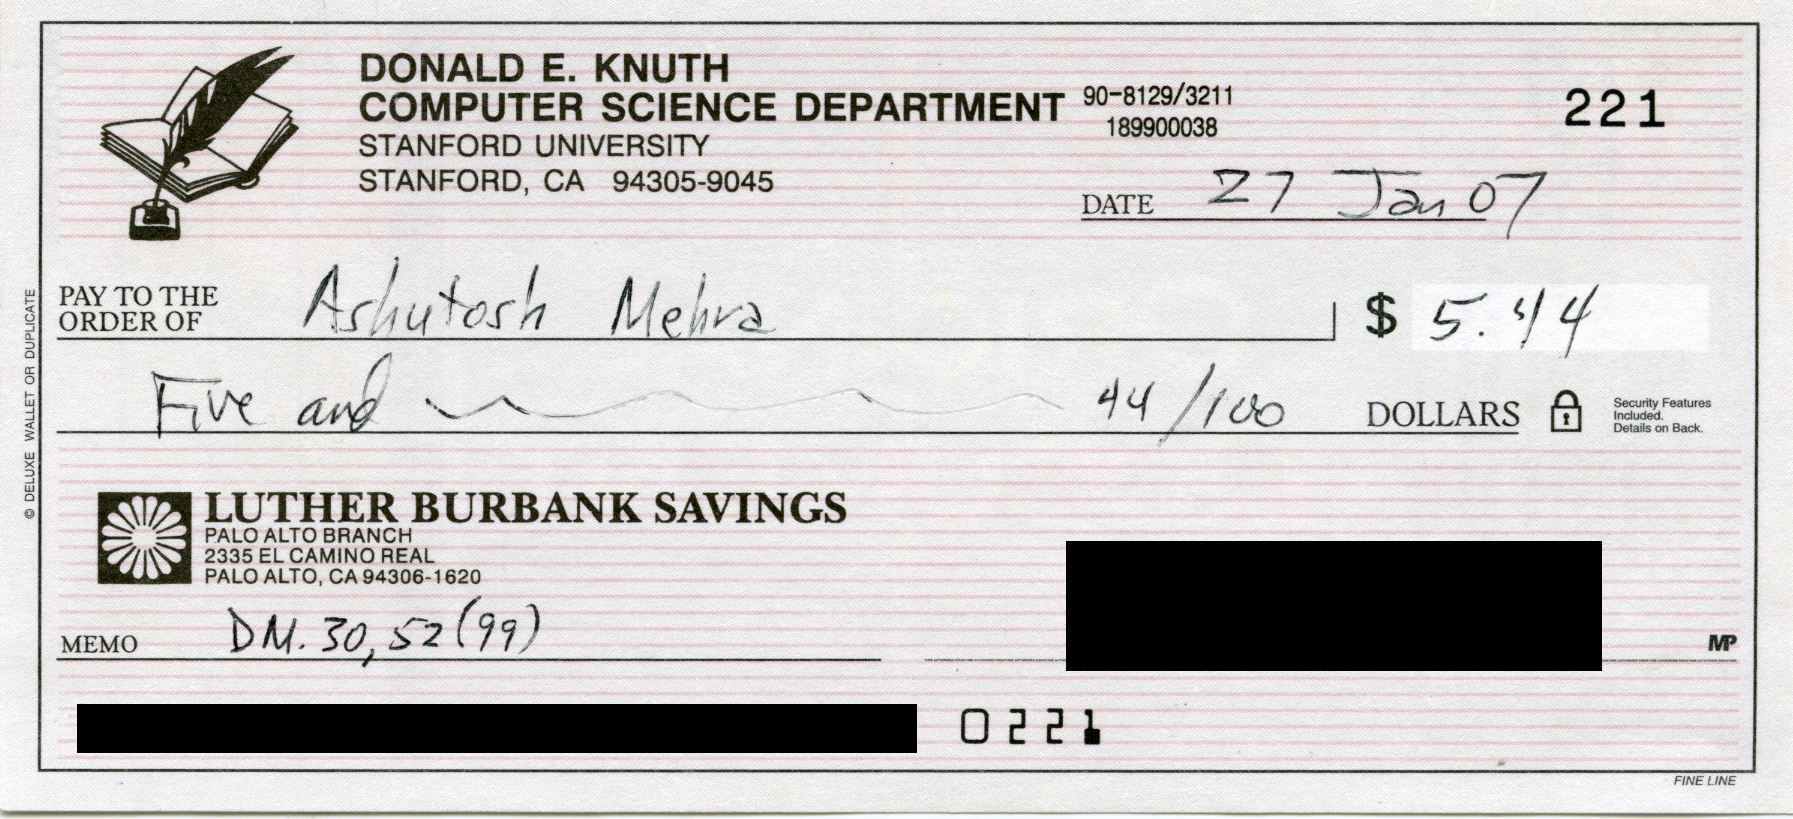 DONALD E. KNUTH
COMPUTER SCIENCE DEPARTMENT
STANFORD UNIVERSITY
STANFORD, CA 94305-9045
90-8129/3211
189900038
221
DATE 27 Jan 07
PAY TO THE
ORDER OF Ashutosh Mehra $ 5.44
Five and 44/100 DOLLARS
Security Features
Included.
Details on Back.
© DELUXE WALLET OR DUPLICATE
LUTHER BURBANK SAVINGS
PALO ALTO BRANCH
2335 EL CAMINO REAL
PALO ALTO, CA 94306-1620
MEMO DM. 30, 52 (99)
MP
0221
FINE LINE